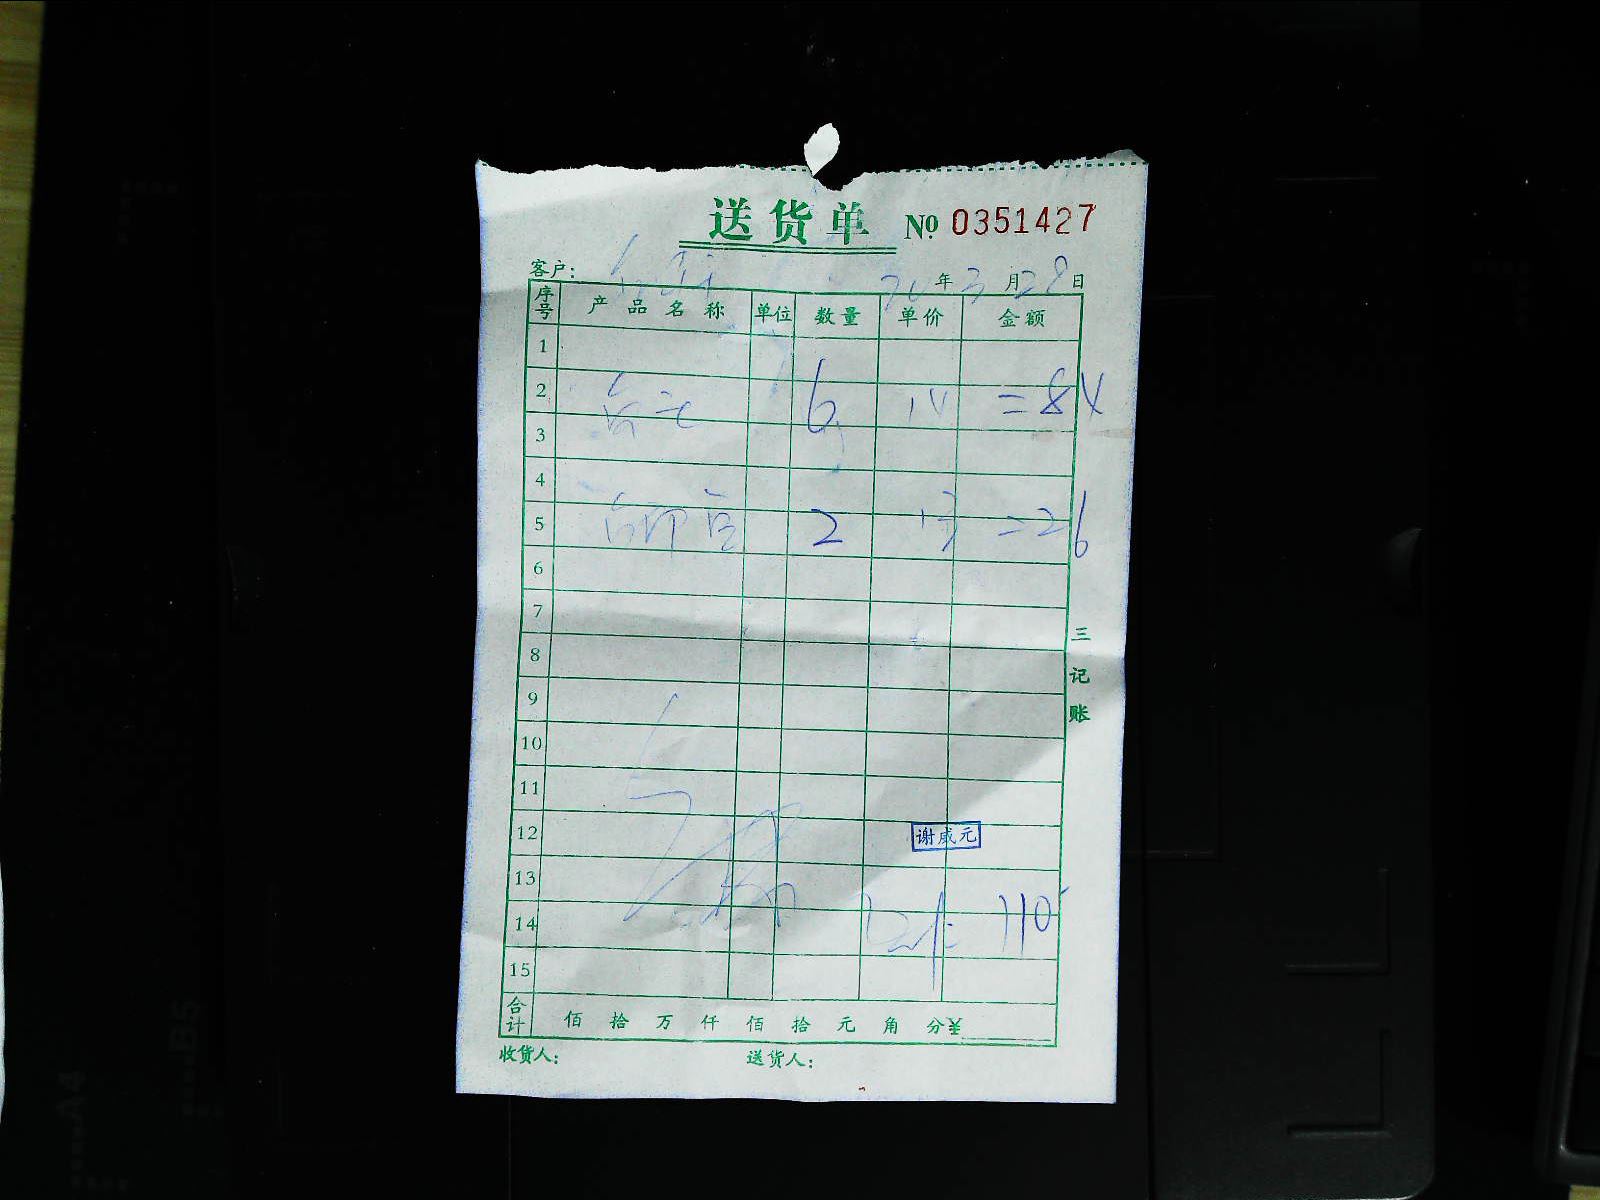 送货单 № 0351427
客户: 20年3月28日
序号 产品名称 单位 数量 单价 金额
1
2 6 14 =84
3
4
5 2 13 =26
6
7
8
9
10
11
12
13
14 110
15
合计 佰 拾 万 仟 佰 拾 元 角 分¥
收货人: 送货人:
三记账
谢威元